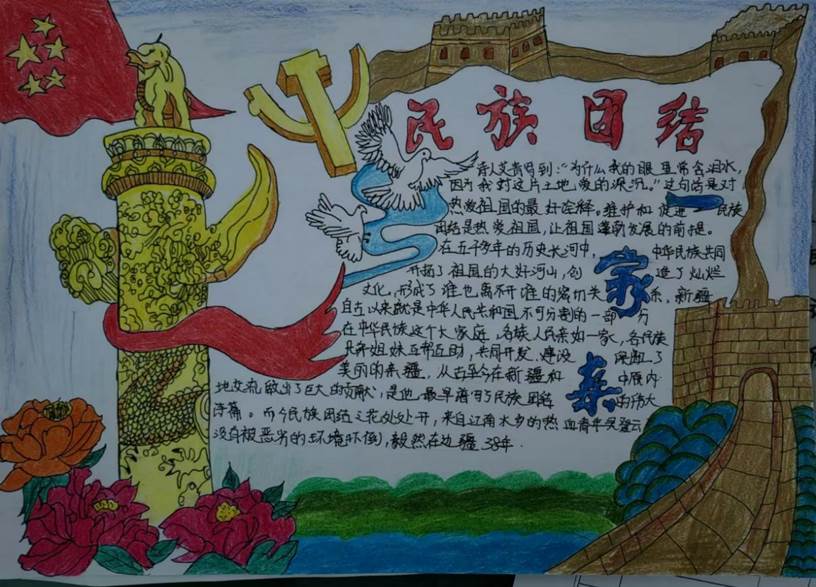 民族团结
诗人艾青写到:“为什么我的眼里常含泪水,
因为我对这片土地爱的深沉。”这句话是对
热爱祖国的最好诠释。维护和促进民族
团结是热爱祖国,让祖国蓬勃发展的前提。
在五千多年的历史长河中, 中华民族共同
开拓了祖国的大好河山,创造了灿烂
文化,形成了谁也离不开谁的密切关系,新疆
自古以来就是中华人民共和国不可分割的一部分
在中华民族这个大家庭,各族人民亲如一家,各民族
兄弟姐妹互帮互助,共同开发、建设
美丽的新疆,从古至今在新疆和中原内
地交流做出了巨大的贡献,是他最早谱写民族团结的伟大
诗篇。而今民族团结之花处处开,来自江南水乡的热血青年吴登云
没有被恶劣的环境吓倒,毅然在边疆38年.
一家亲